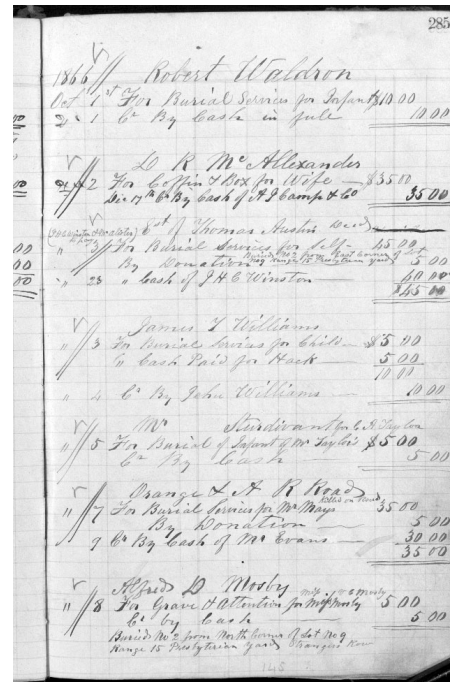 285
1866 Robert Waldron
Oct 1st For Burial Services for Infant $10 00
" 1 Cr By Cash in full 10 00
D R Mc Allexander
" 2 For Coffin & Box for Wife — $35 00
Dec 17th Cr By Cash of A J Camp & Co 35 00
Est of Thomas Austin Decd
" 3 For Burial Services for Self - 45 00
Buried No 2 from East Corner of Lot
By Donation No 9 Range 15 Presbyterian yard 5 00
" 23 " Cash of J H C Winston 40 00
$45 00
James T Williams
" 3 For Burial Services for Child — $5 00
" Cash Paid for Hack — 5 00
10 00
" 4 Cr By John Williams — 10 00
Mr Sturdivant for E A Taylor
" 5 For Burial of Infant of Mr Taylor's $5 00
Cr By Cash 5 00
Orange & A R Road
Killed on Road
" 7 For Burial Services for Mr Mays 35 00
By Donation — 5 00
9 Cr By Cash of Mr Evans — 30 00
35 00
Alfred D Mosby
" 8 For Grave & Attention for Mosby 5 00
Cr by Cash 5 00
Buried No 2 from North Corner of Lot No 9
Range 15 Presbyterian yard Strangers Row